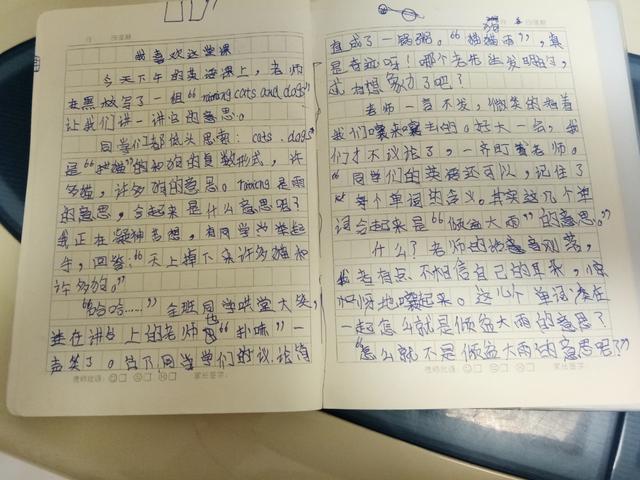 我喜欢这堂课
今天下午的英语课上，老师
在黑板写了一组“raining cats and dogs”
让我们讲一讲它的意思。
同学们都低头思索：cats、dogs
是“猫”和狗的复数形式，许
多猫，许多狗的意思。raining是雨
的意思，合起来是什么意思呢？
我正在凝神思想，有同学举起
手，回答：“天上掉下来许多猫和
许多狗。”
“哈哈……”全班同学哄堂大笑，
连在讲台上的老师也“扑哧”一
声笑了。台下同学们的议论简
直成了一锅粥。“猫猫雨”，真
是奇葩呀！哪个老先生发明，
想象力了吧？
老师一言不发，微笑的看着
我们嚷来嚷去的。好大一会，我
们才不议论了，一齐盯着老师。
“同学们的英语还可以，记住了
每个单词的含义。其实这几个单
词合起来是“倾盆大雨”的意思。”
什么？老师的话音刚落，
我有点不相信自己的耳朵，惊
讶地嚷起来。这几个单词凑在
一起怎么就是倾盆大雨的意思？
“怎么就不是倾盆大雨的意思呢？”
老师批语：
家长签字：